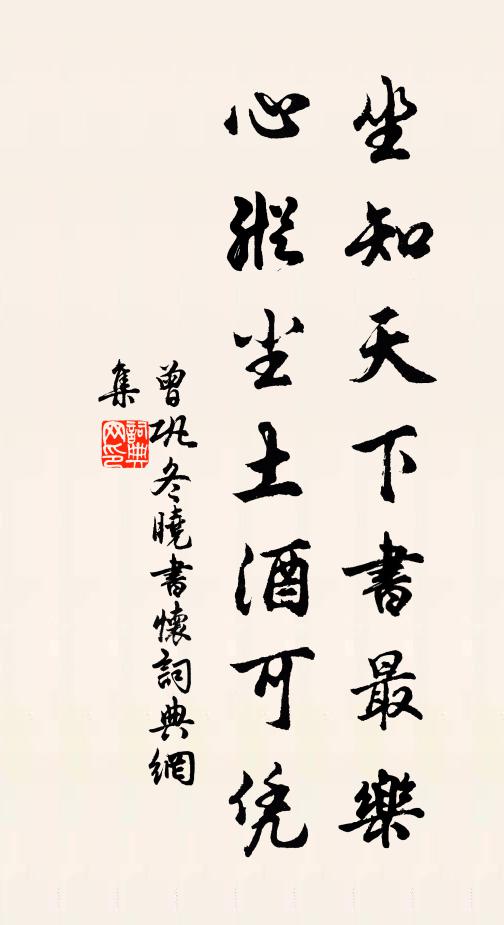 坐知天下書最樂
心縱尘土酒可凭
曾巩冬曉書懷詞典網
集
詞典
网印